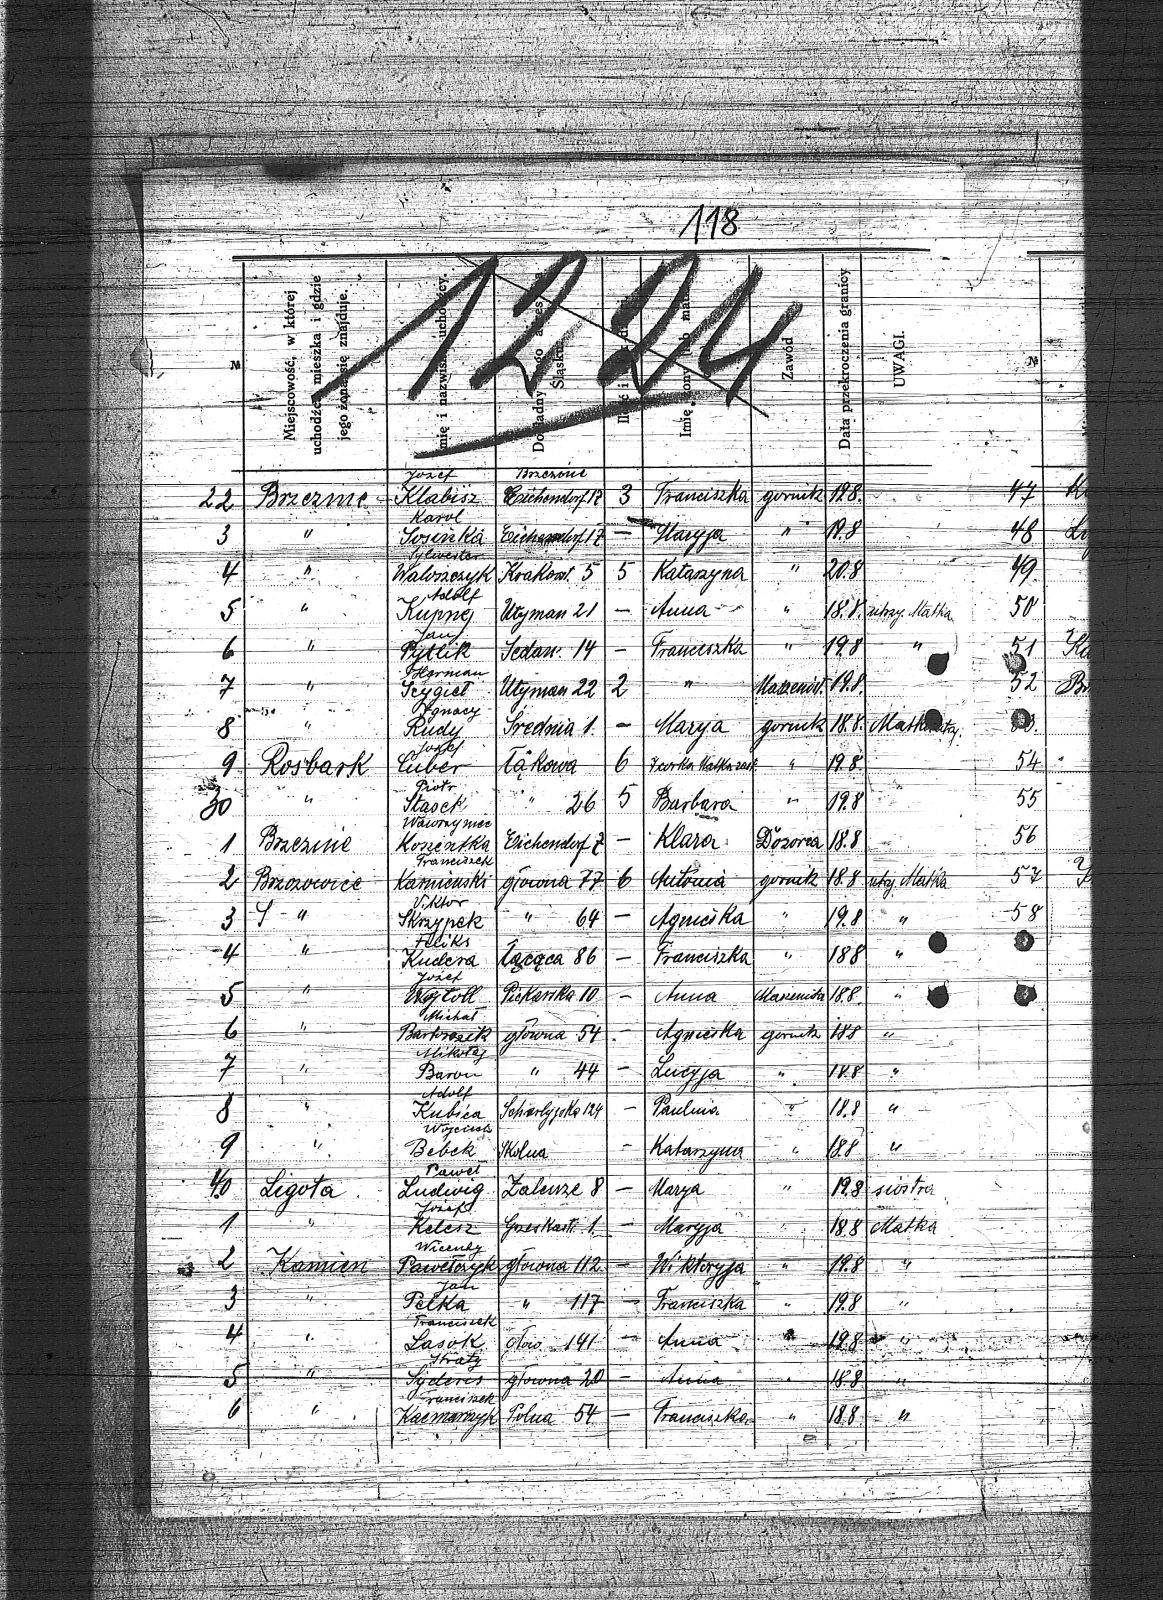 118
1224
№
Miejscowość, w której
uchodźca mieszka i gdzie
jego żona się znajduje.
mię i nazwis uchodźcy.
Śląsku
Ilość i
Imię
Zawód
Data przekroczenia granicy
UWAGI.
№
Józef Brzezinie
22 Brzezinie Klabisz Eichendorf 17 3 Franciszka gornik 19.8. 47
Karol
3 " Sosinka Eichendorf 17 — Maryja " 19.8 48
Sylwester
4 " Waloszczyk Krakows. 5 5 Katarzyna " 20.8 49
Adolf
5 " Kupnej Utyman 21 — Anna " 18.8. utrzy. Matka 50
Jan
6 " Pytlik Sedan. 14 — Franciszka " 19.8 " 51
Herman
7 " Scygiel Utyman 22 2 " Maszenist. 19.8. 52
Ignacy
8 " Rudy Średnia 1. — Marya gornik 18.8.
Józef
9 Rosbark Cuber Łąkowa 6 " 19.8 54
Piotr
30 " Stasek " 26 5 Barbara " 19.8 55
Wawrzyniec
1 Brzezinie Koszentka Eichendorf 7 — Klara Dozorca 18.8 56
Franciszek
2 Brzozowice Kamienski głowna 77 6 Antonia gornik 18.8 utrzy. Matka 57
Viktor
3 " Skrzypek " 64 — Agnieska " 19.8 " 58
Feliks
4 " Kudera Łącąca 86 — Franciszka " 18.8 "
Józef
5 " Piekarska 10 — Anna Maszenista 18.8. "
Michał
6 " głowna 54 — Agnieska gornik 18.8 "
Mikołaj
7 " Baron " 44 — Lucyja " 18.8 "
Adolf
8 " Kubica 124 — Paulina " 18.8 "
Wojciech
9 " Bebek Skolna — Katarzyna " 18.8 "
Paweł
40 Ligota Ludwig Zalenze 8 — Marya " 19.8 siostra
Józef
1 " Kelesz 1. — Maryja " 18.8 Matka
Wicenty
2 Kamien Pawełczyk głowna 112 — Wiktoryja " 19.8 "
Jan
3 " Pelka " 117 — Franciszka " 19.8 "
Franciszek
4 " Lasok 141 — Anna " 19.8 "
5 " głowna 20 — Anna " 18.8 "
Franciszek
6 " Kacmarzyk Polna 54 — Franciszka " 18.8 "